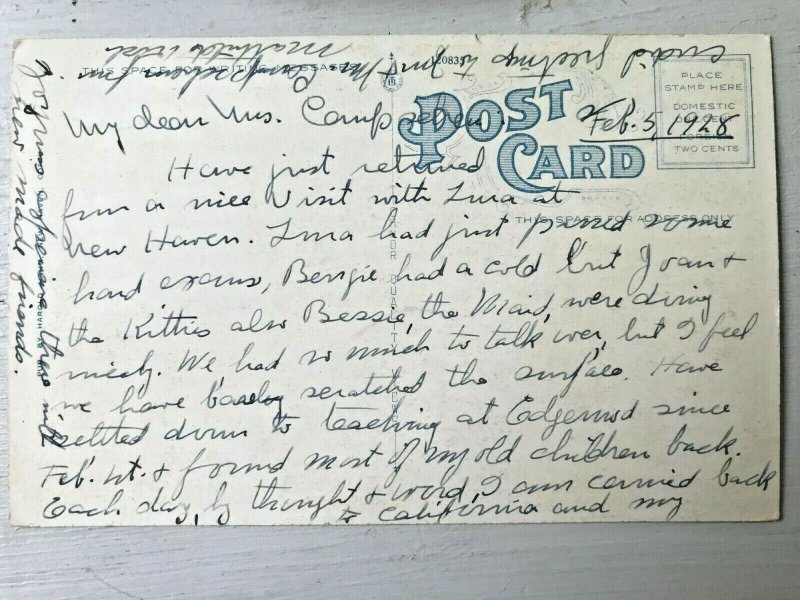 THIS SPACE FOR WRITING MESSAGES
20835
PLACE
STAMP HERE
DOMESTIC
TWO CENTS
POST
CARD
THIS SPACE FOR ADDRESS ONLY
Feb. 5, 1928
My dear Mrs. Campschen
Have just returned
from a nice visit with Lura at
New Haven. Lura had just passed some
hard exams, Bengie had a cold but Joan +
the Kitties also Bessie, the Maid, were doing
nicely. We had so much to talk over, but I feel
we have barely scratched the surface. Have
settled down to teaching at Edgewood since
Feb. 1st. + found most of my old children back.
Each day, by thought + word, I am carried back
to California and my
joyous experience there with
new made friends.
Cordial greetings to you + Mr.